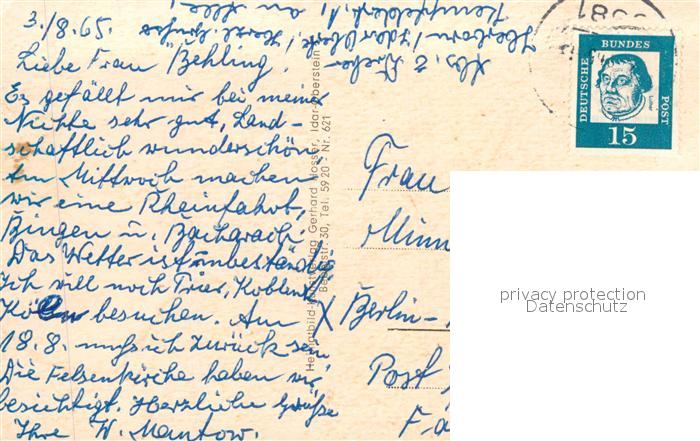 3./8.65.
Liebe Frau Behling,
Es gefällt mir bei meiner
Nichte sehr gut, Land-
schaftlich wunderschön
Am Mittwoch machen
wir eine Rheinfahrt,
Bingen u. Bacharach.
Das Wetter ist unbeständig
Ich will noch Trier, Koblenz
Köln besuchen. Am
18.8. muß ich zurück sein
Die Felsenkirche haben wir
besichtigt. Herzliche Grüße
Ihre W. Mantow.
Abs. z.
Herzl. Grüße
an Alle!
Gerhard Hosser, Idar-Oberstein
30, Tel. 5920 - Nr. 621
DEUTSCHE
BUNDES
POST
15
Frau
Berlin-
Post
privacy protection
Datenschutz